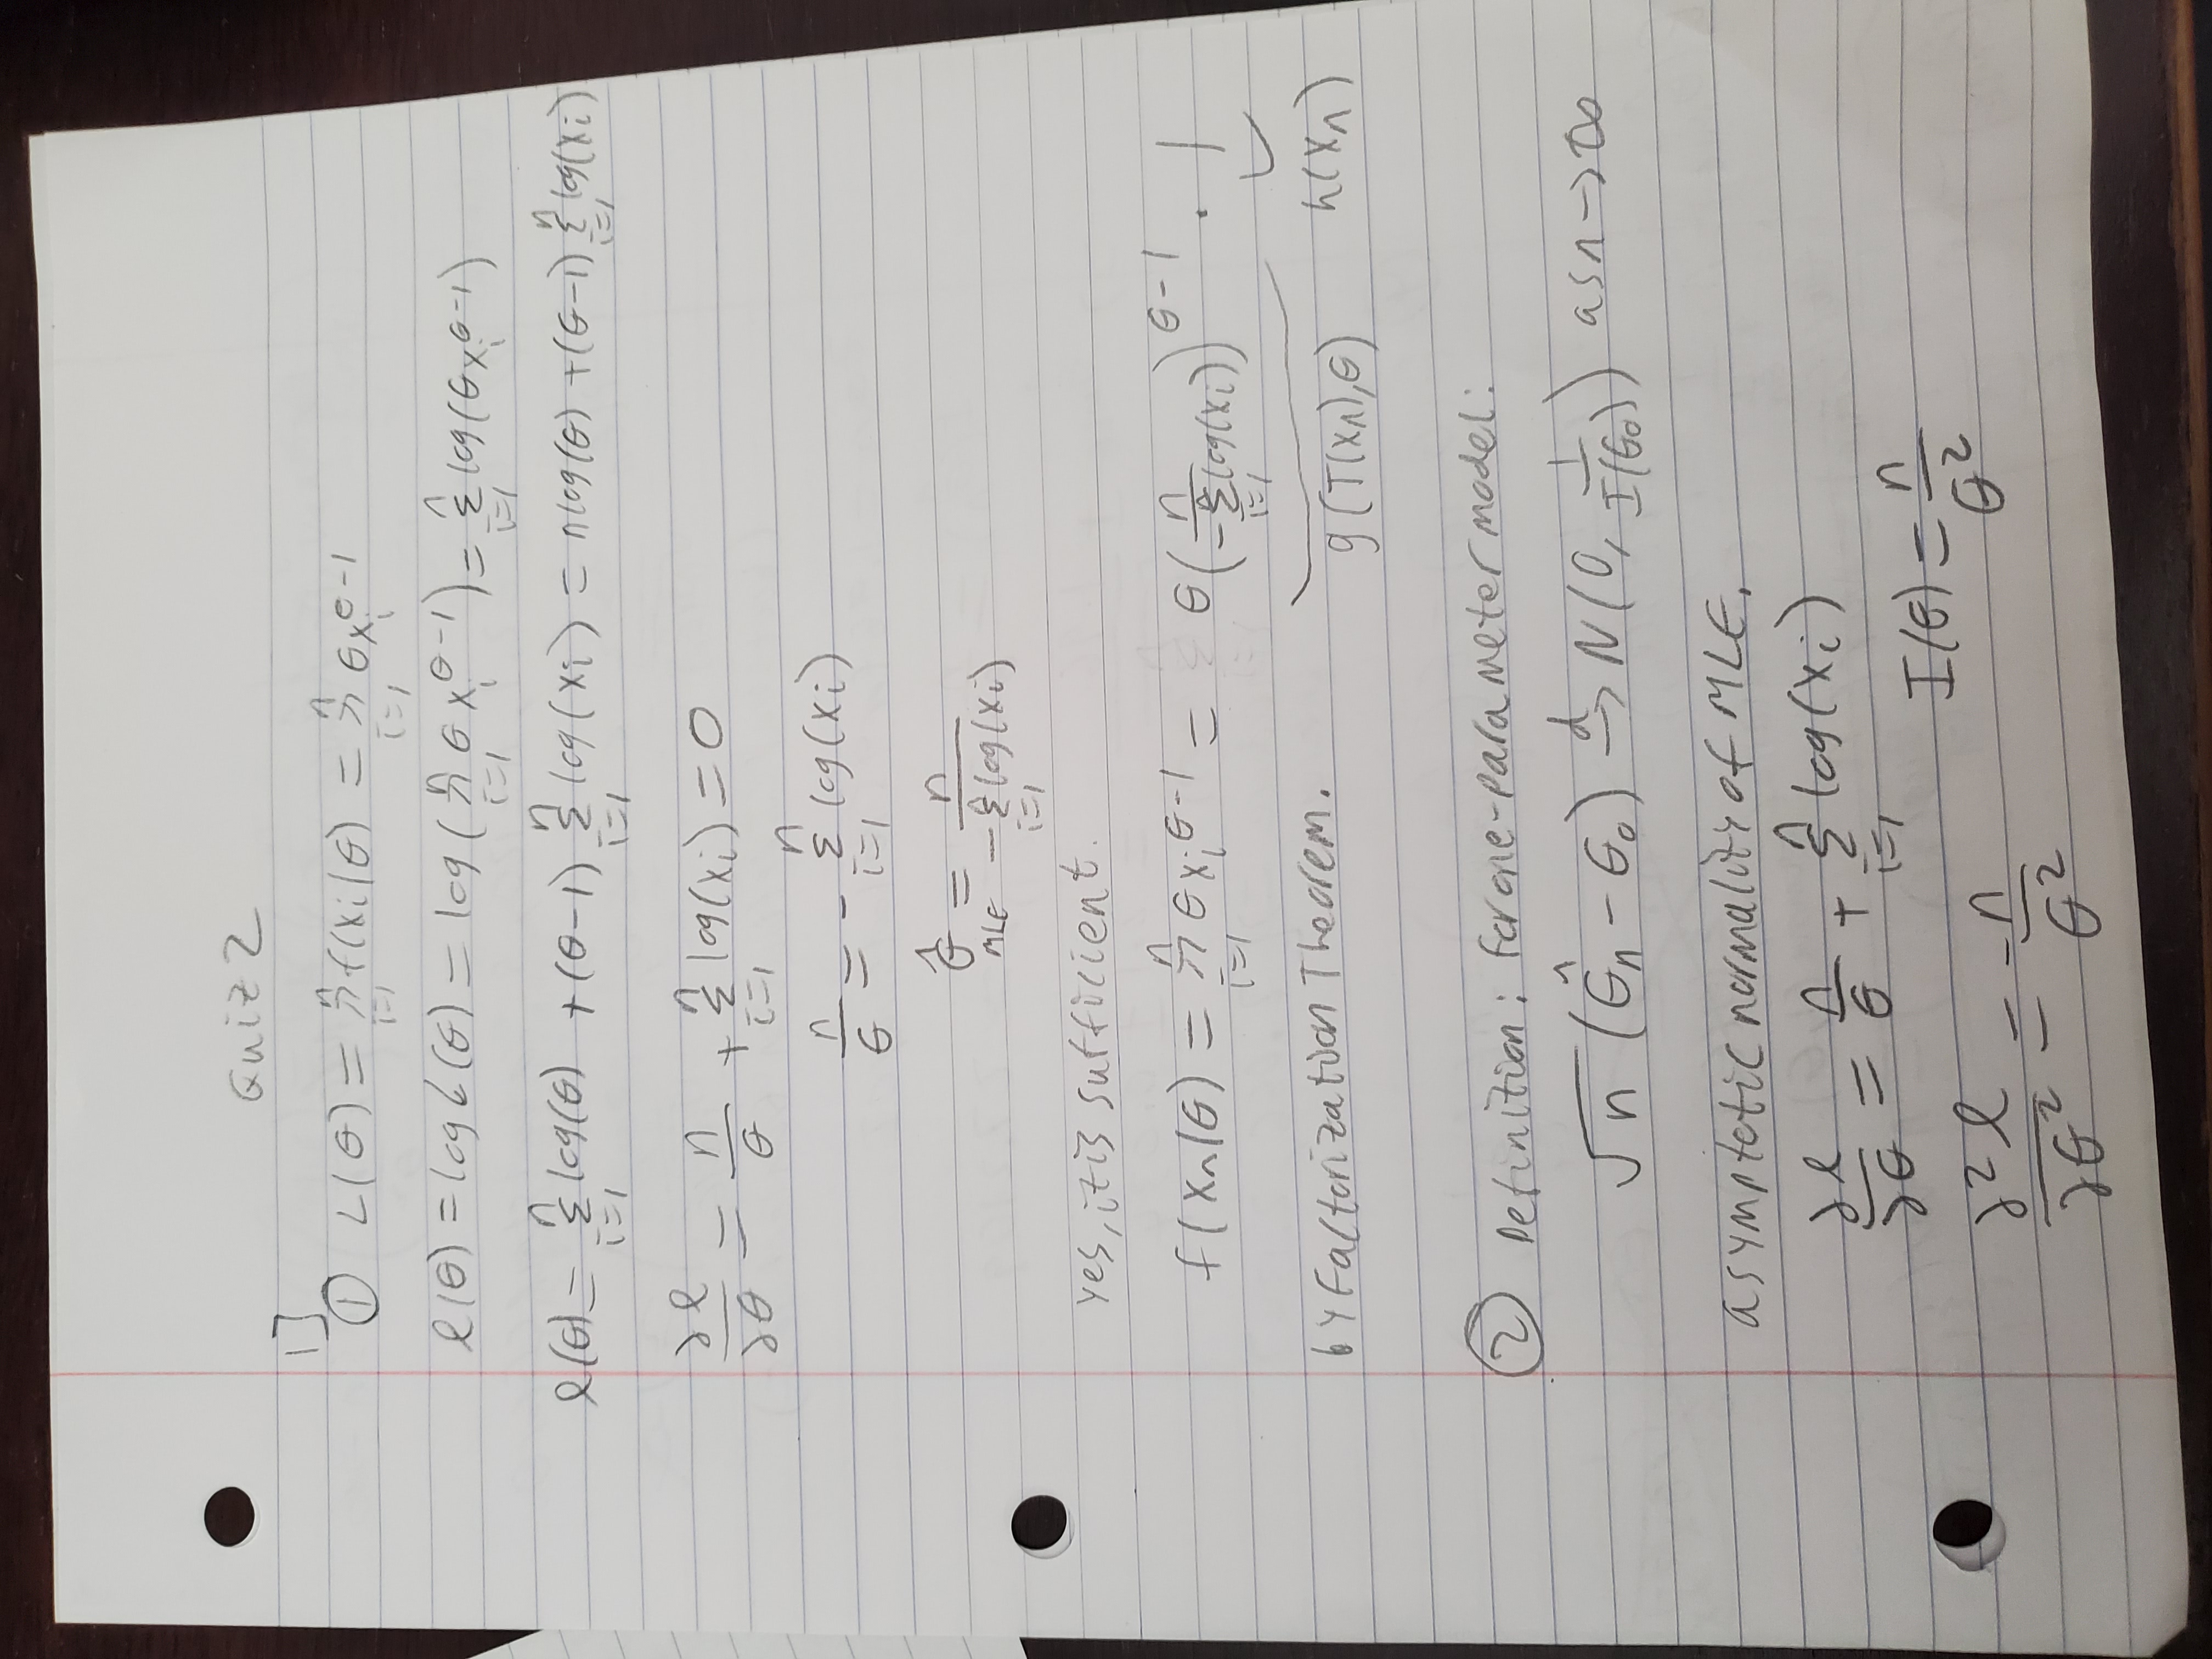 Quiz 2
1]
① L(θ) = ∏_{i=1}^{n} f(x_i|θ) = ∏_{i=1}^{n} θx_i^{θ-1}
ℓ(θ) = log L(θ) = log(∏_{i=1}^{n} θx_i^{θ-1}) = Σ_{i=1}^{n} log(θx_i^{θ-1})
ℓ(θ) = Σ_{i=1}^{n} log(θ) + (θ-1) Σ_{i=1}^{n} log(x_i) = n log(θ) + (θ-1) Σ_{i=1}^{n} log(x_i)
∂ℓ/∂θ = n/θ + Σ_{i=1}^{n} log(x_i) = 0
n/θ = - Σ_{i=1}^{n} log(x_i)
θ̂_{MLE} = n/(-Σ_{i=1}^{n} log(x_i))
yes, it is sufficient.
f(x_n|θ) = ∏_{i=1}^{n} θx_i^{θ-1} = θ(n/(-Σ_{i=1}^{n} log(x_i)))^{θ-1} · 1
by Factorization Theorem. g(T(x_n),θ) h(x_n)
② Definition: for one-parameter model:
√n (θ̂_n - θ_0) →^d N(0, 1/I(θ_0)) as n→∞
asymptotic normality of MLE.
∂ℓ/∂θ = n/θ + Σ_{i=1}^{n} log(x_i)
I(θ) = n/θ²
∂²ℓ/∂θ² = -n/θ²